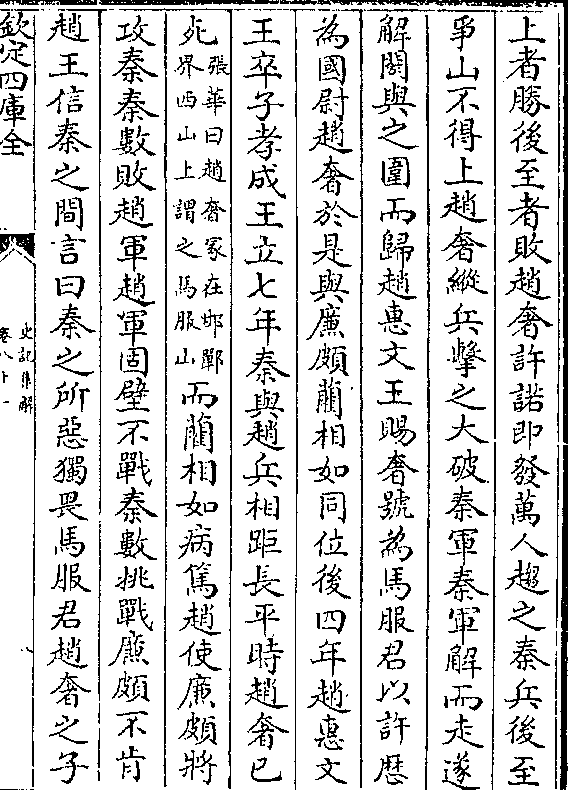 上者勝後至者敗趙奢許諾即發萬人趨之秦兵後至
爭山不得上趙奢縱兵擊之大破秦軍秦軍解而走遂
解閼與之圍而歸趙惠文王賜奢號為馬服君以許歷
為國尉趙奢於是與廉頗藺相如同位後四年趙惠文
王卒子孝成王立七年秦與趙兵相距長平時趙奢已
死張華曰趙奢冢在邯鄲界西山上謂之馬服山而藺相如病篤趙使廉頗將
攻秦秦數敗趙軍趙軍固壁不戰秦數挑戰廉頗不肯
趙王信秦之間言曰秦之所惡獨畏馬服君趙奢之子
欽定四庫全
史記集解
卷八十一